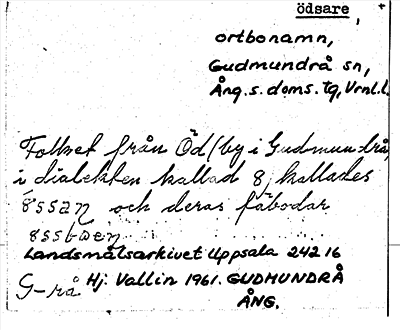 ödsare,
ortbonamn,
Gudmundrå sn,
Ång.s.doms.tg, Vrnl.l.
Folket från Öd (by i Gudmundrå,
i dialekten kallad 8, kallades
össan och deras fäbodar
össböen
Landsmålsarkivet Uppsala 24216
G-rå Hj. Vallin 1961. GUDMUNDRÅ
ÅNG.